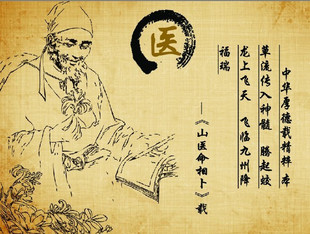 医
中华厚德载精粹 本
草流传入神髓 腾起蛟
龙上飞天 飞临九州降
福瑞
——《山医命相卜》载